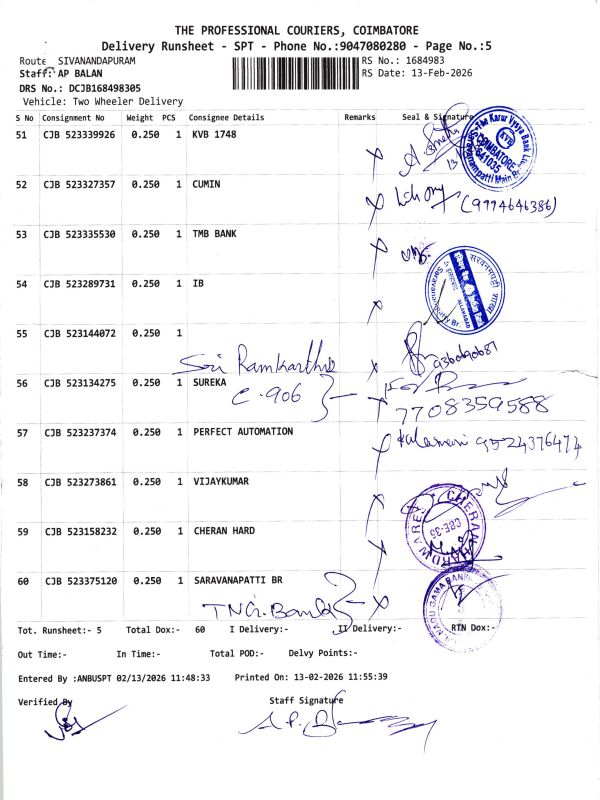 THE PROFESSIONAL COURIERS, COIMBATORE
Delivery Runsheet - SPT - Phone No.:9047080280 - Page No.:5
Route SIVANANDAPURAM RS No.: 1684983
Staff: AP BALAN RS Date: 13-Feb-2026
DRS No.: DCJB168498305
Vehicle: Two Wheeler Delivery
S No Consignment No Weight PCS Consignee Details Remarks Seal & Signature
51 CJB 523339926 0.250 1 KVB 1748
The Karur Vysya Bank
KVB
COIMBATORE
641035
52 CJB 523327357 0.250 1 CUMIN
(9994646386)
53 CJB 523335530 0.250 1 TMB BANK
54 CJB 523289731 0.250 1 IB
ALLAHABAD
55 CJB 523144072 0.250 1
Sri Ramkarthic
9360690687
56 CJB 523134275 0.250 1 SUREKA
C-906
For
7708359588
57 CJB 523237374 0.250 1 PERFECT AUTOMATION
kalamani 9524376474
58 CJB 523273861 0.250 1 VIJAYKUMAR
59 CJB 523158232 0.250 1 CHERAN HARD
CHERAN HARDWARES
CBE-35
60 CJB 523375120 0.250 1 SARAVANAPATTI BR
TNGr.Bank
GAMA BANK
Tot. Runsheet:- 5 Total Dox:- 60 I Delivery:- II Delivery:- RTN Dox:-
Out Time:- In Time:- Total POD:- Delvy Points:-
Entered By :ANBUSPT 02/13/2026 11:48:33 Printed On: 13-02-2026 11:55:39
Verified By Staff Signature